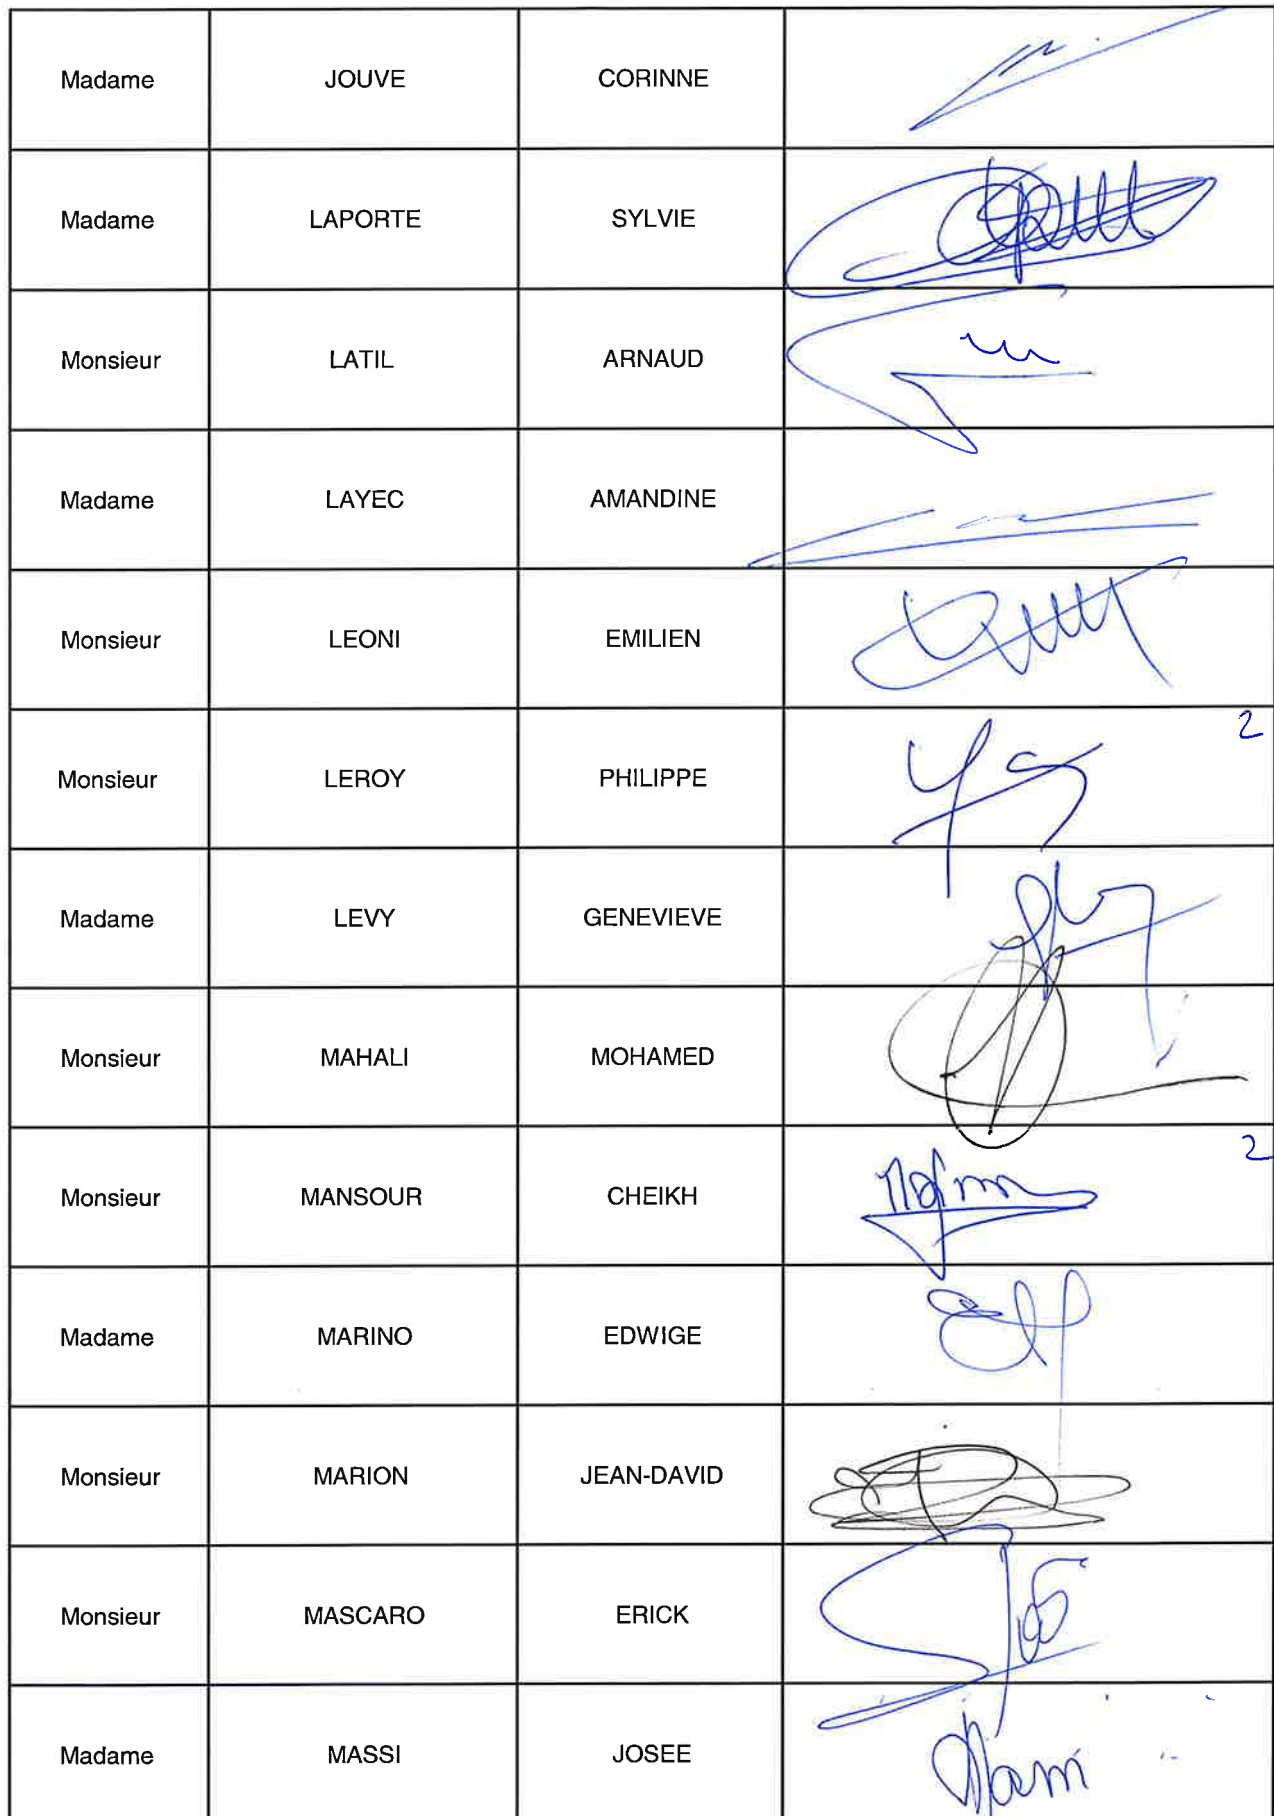 Madame JOUVE CORINNE
Madame LAPORTE SYLVIE
Monsieur LATIL ARNAUD
Madame LAYEC AMANDINE
Monsieur LEONI EMILIEN
Monsieur LEROY PHILIPPE 2
Madame LEVY GENEVIEVE
Monsieur MAHALI MOHAMED
Monsieur MANSOUR CHEIKH 2
Madame MARINO EDWIGE
Monsieur MARION JEAN-DAVID
Monsieur MASCARO ERICK
Madame MASSI JOSEE